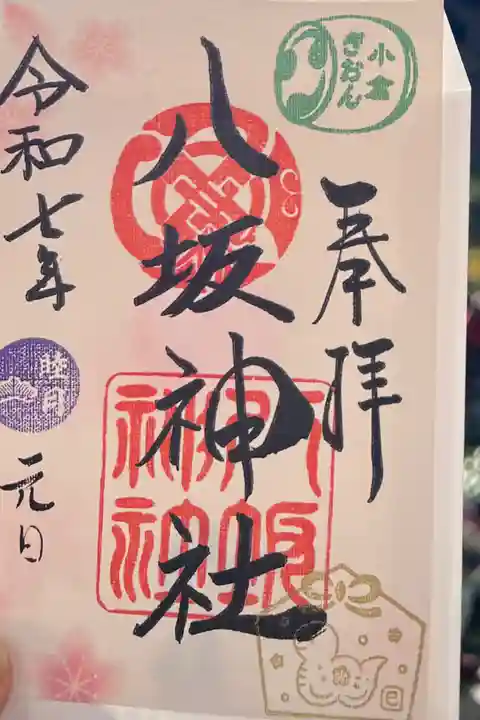 小倉
ぎおん
奉拝
八坂神社
令和七年
睦月
元日
巳